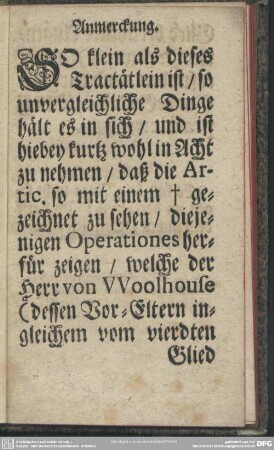 Anmerckung.
SO klein als dieses
Tractätlein ist / so
unvergleichliche Dinge
hält es in sich / und ist
hiebey kurtz wohl in Acht
zu nehmen / daß die Ar-
tic. so mit einem † ge-
zeichnet zu sehen / dieje-
nigen Operationes her-
für zeigen / welche der
Herr von VVoolhouse
(dessen Vor-Eltern in-
gleichem vom vierdten
Glied